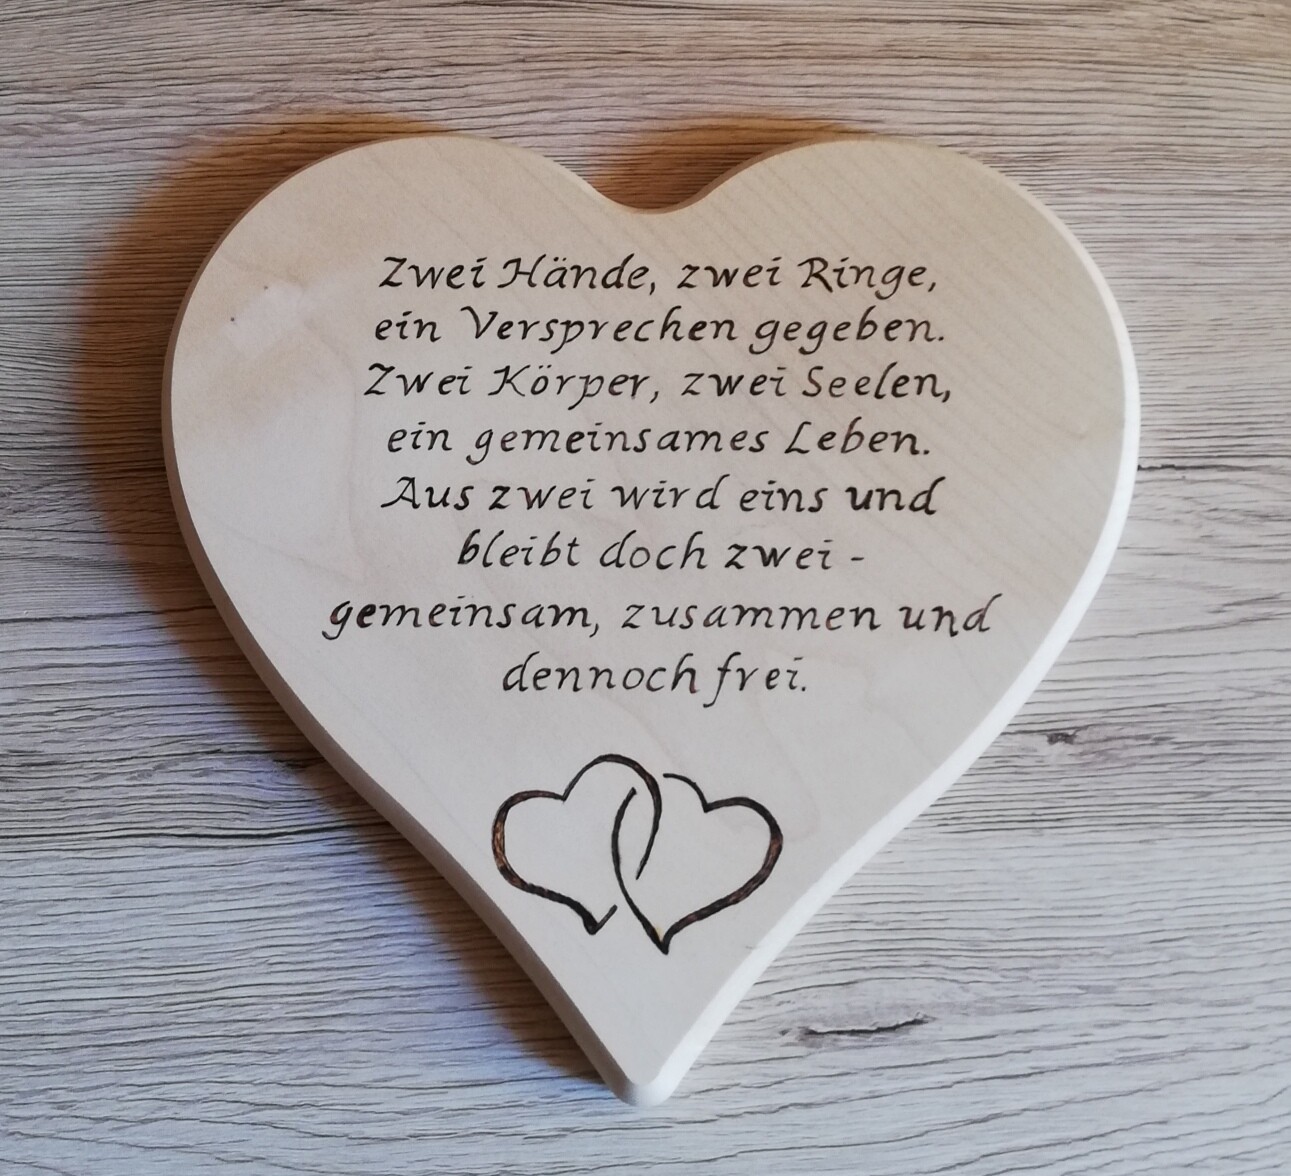 Zwei Hände, zwei Ringe,
ein Versprechen gegeben.
Zwei Körper, zwei Seelen,
ein gemeinsames Leben.
Aus zwei wird eins und
bleibt doch zwei -
gemeinsam, zusammen und
dennoch frei.